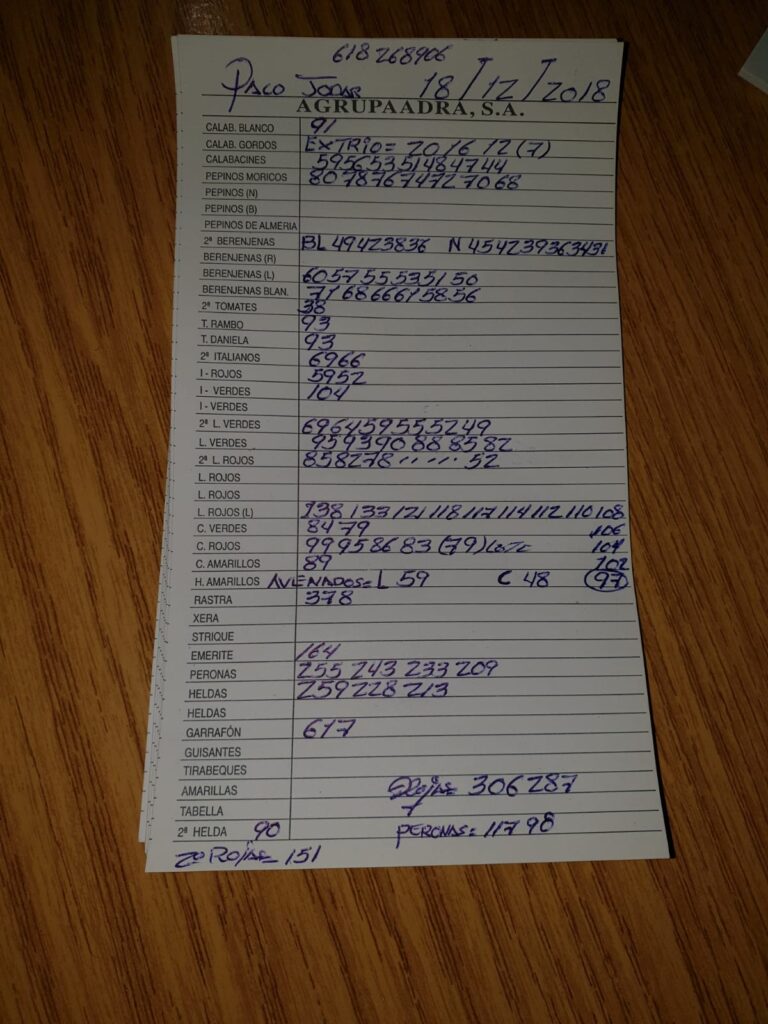 618268906
PACO JODAR 18/12/2018
AGRUPAADRA, S.A.
CALAB. BLANCO 91
CALAB. GORDOS EXTRIO= 20 16 12 (7)
CALABACINES 59 56 53 51 48 47 44
PEPINOS MORICOS 80 78 76 74 72 70 68
PEPINOS (N)
PEPINOS (B)
PEPINOS DE ALMERIA
2ª BERENJENAS BL 49 42 38 36 N 45 42 39 36 34 31
BERENJENAS (R)
BERENJENAS (L) 60 57 55 53 51 50
BERENJENAS BLAN. 71 68 66 61 58 56
2ª TOMATES 38
T. RAMBO 93
T. DANIELA 93
2ª ITALIANOS 69 66
I - ROJOS 59 52
I - VERDES 104
I - VERDES
2ª L. VERDES 69 64 59 55 52 49
L. VERDES 95 93 90 88 85 82
2ª L. ROJOS 85 82 78 ,, ,, ,, 52
L. ROJOS
L. ROJOS
L. ROJOS (L) 138 133 121 118 117 114 112 110 108
C. VERDES 84 79 106
C. ROJOS 99 95 86 83 (79) 104
C. AMARILLOS 89 102
H. AMARILLOS AVENADOS= L 59 C 48 (97)
RASTRA 378
XERA
STRIQUE
EMERITE 164
PERONAS 255 243 233 209
HELDAS 259 228 213
HELDAS
GARRAFÓN 617
GUISANTES
TIRABEQUES
AMARILLAS ROJAS= 306 287
TABELLA
2ª HELDA 90 PERONAS= 117 98
2ª ROJAS= 151